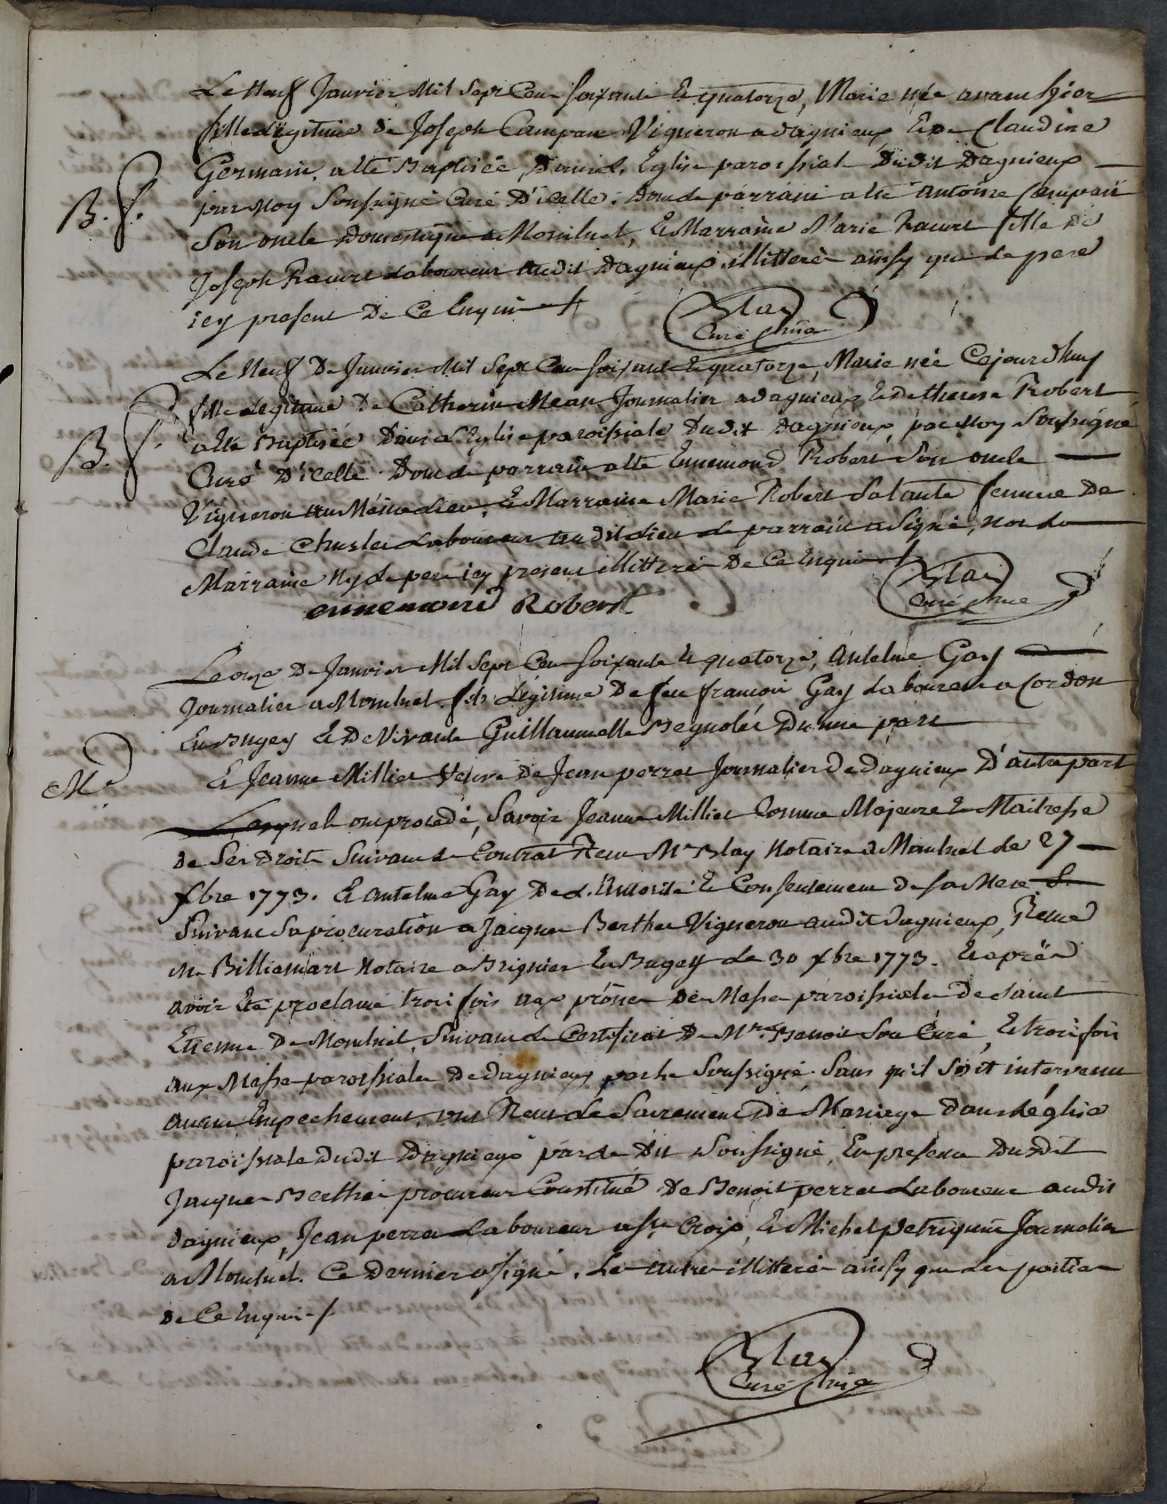 Le Neuf Janvier Mil Sept Cent soixante Et quatorze, Marie née avant hier
fille légitime de Joseph Campan Vigneron a dagnieux Et de Claudine
Germain, a été Baptisée, Dans L'Eglise paroissiale Dudit Dagnieux
B. f. par Moy Soussigné Curé D'icelle. Dont le parrain a été antoine Campan
Son oncle Domestique a Montluel, Et Marraine Marie Ravet fille de
Joseph Ravet Laboureur audit Dagnieux illitterés ainsy que Le pere
icy present De Ce Enquis
Blay
Curé
Le Neuf De Janvier Mil Sept Cent soixante Et quatorze, Marie née Cejourdhuy
fille Légitime De Catherin Mean Journalier a dagnieux Et de therese Robert
B. f. a été Baptisée Dans L'Eglise paroissiale Dudit dagnieux, par Moy Soussigné
Curé D'icelle. Dont Le parrain a été Ennemond Robert Son oncle
Vigneron au Même Lieu, Et Marraine Marie Robert Sa tante femme De
Claude Laboureur au dit Lieu Le parrain a Signé, Non La
Marraine Ny Le pere icy present illitterés De Ce Enquis
ennemond Robert
Blay
Curé
Le onze De Janvier Mil Sept Cent soixante Et quatorze, Antelme Gay
Journalier a Montluel fils Légitime De feu francois Gay Laboureur a Cordon
En Bugey Et De Vivante Guillaumette D'une part
M. Et Jeanne Millier Veuve De Jean perret Journalier De Dagnieux D'autre part
Lesquels ont procedé, Savoir Jeanne Millier Comme Majeure Et Maitresse
De Ses Droits Suivant Le Contrat Reçu Me Blay Notaire a Montluel Le 27
xbre 1773. Et Antelme Gay De L'Autorité Et Consentement de sa Mere
Suivant Sa procuration a Jacques Berthet Vigneron audit Dagnieux, Reçue
Me Billiemart Notaire a Brignier En Bugey Le 30 xbre 1773. Et aprés
avoir Eté proclamé trois fois aux prônes De Messe paroissiale De saint
Etienne De Montluel, Suivant Le Certificat De Mre Benoit Son Curé, Et trois fois
aux Messe paroissiales De dagnieux par Le Soussigné. Sans qu'il Soit intervenu
aucun Empechement, ont Recu Le Sacrement De Mariage Dans L'église
paroissiale Dudit Dagnieux par Le Dit Soussigné, En presence Dudit
Jacques Berthet procureur Constitué De Benoit perret Laboureur audit
dagnieux, Jean perret Laboureur a Ste Croix, Et Michel Petriquin Journalier
a Montluel. Ce Dernier a Signé. Les autres illitterés ainsy que Les parties
De Ce Enquis
Blay
Curé